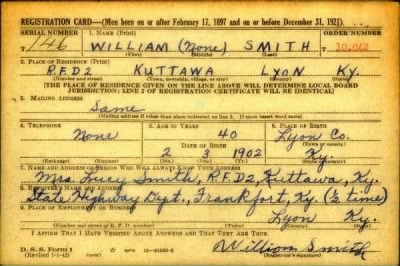 REGISTRATION CARD—(Men born on or after February 17, 1897 and on or before December 31, 1921)
SERIAL NUMBER 1. NAME (Print) ORDER NUMBER
T 146 WILLIAM (None) SMITH T 10,042
2. PLACE OF RESIDENCE (Print)
R.F.D 2 KUTTAWA LYON KY.
(Number and street) (Town, township, village, or city) (County) (State)
[THE PLACE OF RESIDENCE GIVEN ON THE LINE ABOVE WILL DETERMINE LOCAL BOARD
JURISDICTION; LINE 2 OF REGISTRATION CERTIFICATE WILL BE IDENTICAL]
3. MAILING ADDRESS
Same
(Mailing address if other than place indicated on line 2. If same insert word same)
4. TELEPHONE 5. AGE IN YEARS 6. PLACE OF BIRTH
None 40 Lyon Co.
DATE OF BIRTH (Town or county)
2 3 1902 Ky.
(Exchange) (Number) (Mo.) (Day) (Yr.) (State or country)
7. NAME AND ADDRESS OF PERSON WHO WILL ALWAYS KNOW YOUR ADDRESS
Mrs. Smith, R.F.D2, Kuttawa, Ky.
8. EMPLOYER'S NAME AND ADDRESS
State Highway Dept., Frankfort, Ky. (½ time)
9. PLACE OF EMPLOYMENT OR BUSINESS
Lyon Ky.
(Number and street or R. F. D. number) (Town) (County) (State)
I AFFIRM THAT I HAVE VERIFIED ABOVE ANSWERS AND THAT THEY ARE TRUE.
D. S. S. Form 1
(Revised 1-1-42) (over) William Smith
(Registrant's signature)